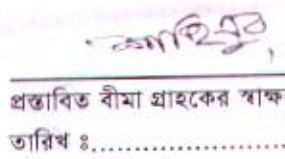 শাহিনুর
প্রস্তাবিত বীমা গ্রাহকের স্বাক্ষ
তারিখ ঃ......................